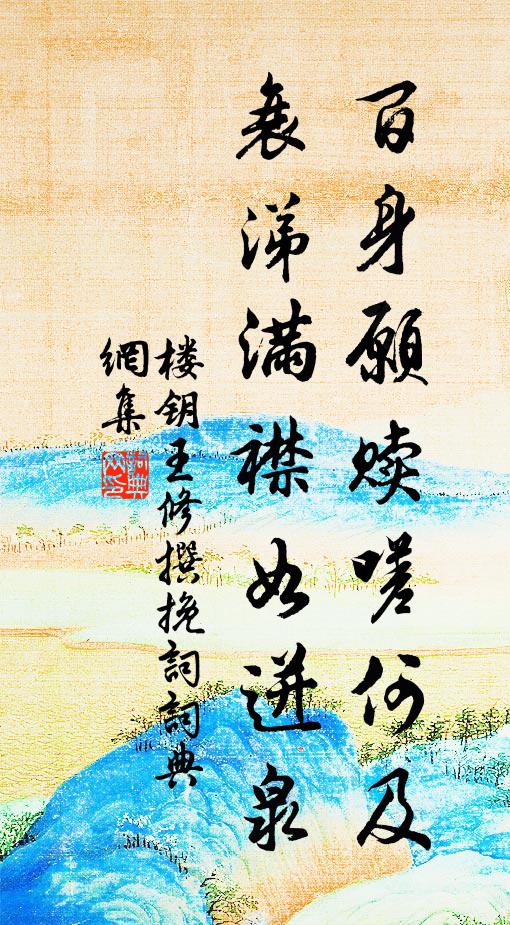 百身愿赎嗟何及
衰涕满襟如迸泉
楼钥王修撰挽词词典
網集